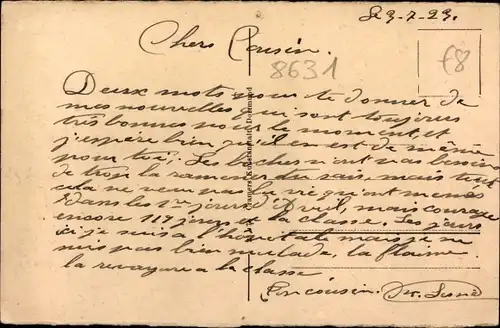 Le 3-7-23.
Cher Cousin.
8631
£8
Deux mots pour te donner de
mes nouvelles qui sont toujours
très bonnes pour le moment, et
j'espère bien qu'il en est de même
pour toi. Les boches n'ont pas besoin
de trop la ramener tu sais, mais tout
cela ne vaut pas la vie qu'ont menés
dans les 1er jours d'Avril, mais courage
encore 117 jours et la classe. Les jours
ici je suis a l'hopital mais je ne
suis pas bien malade, la flemme
la revoyure a la classe
Ton cousin.
Dortmund